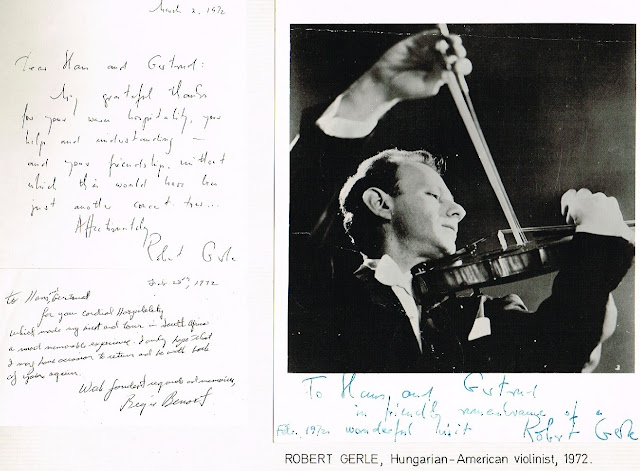 March 2, 1972
Dear Hans and Gertrud:
My grateful thanks
for your warm hospitality, your
help and understanding —
and your friendship, without
which this would have been
just another concert tour...
Affectionately
Robert Gerle
Feb 28, 1972
To Hans, Gertrud
for your cordial Hospitality
which made my tour in South Africa
a most memorable experience. I only hope that
I may have occasion to return and be with both
of you again.
With fondest regards and memories,
To Hans and Gertrud
in friendly remembrance of a
Feb. 1972 wonderful visit Robert Gerle
ROBERT GERLE, Hungarian-American violinist, 1972.